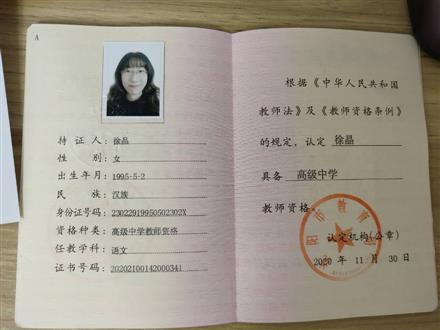 A
持 证 人：徐晶
性 别：女
出生年月：1995-5-2
民 族：汉族
身份证号码：23022919950502302X
资格种类：高级中学教师资格
任教学科：语文
证书号码：20202100142000341
根据《中华人民共和国
教师法》及《教师资格条例》
的规定，认定 徐晶
具备 高级中学
教师资格。
市教育
认定机构(公章)
2020 年 11 月 30 日